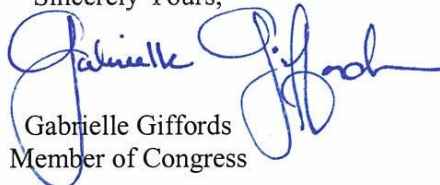 Sincerely Yours,
Gabrielle Giffords
Gabrielle Giffords
Member of Congress